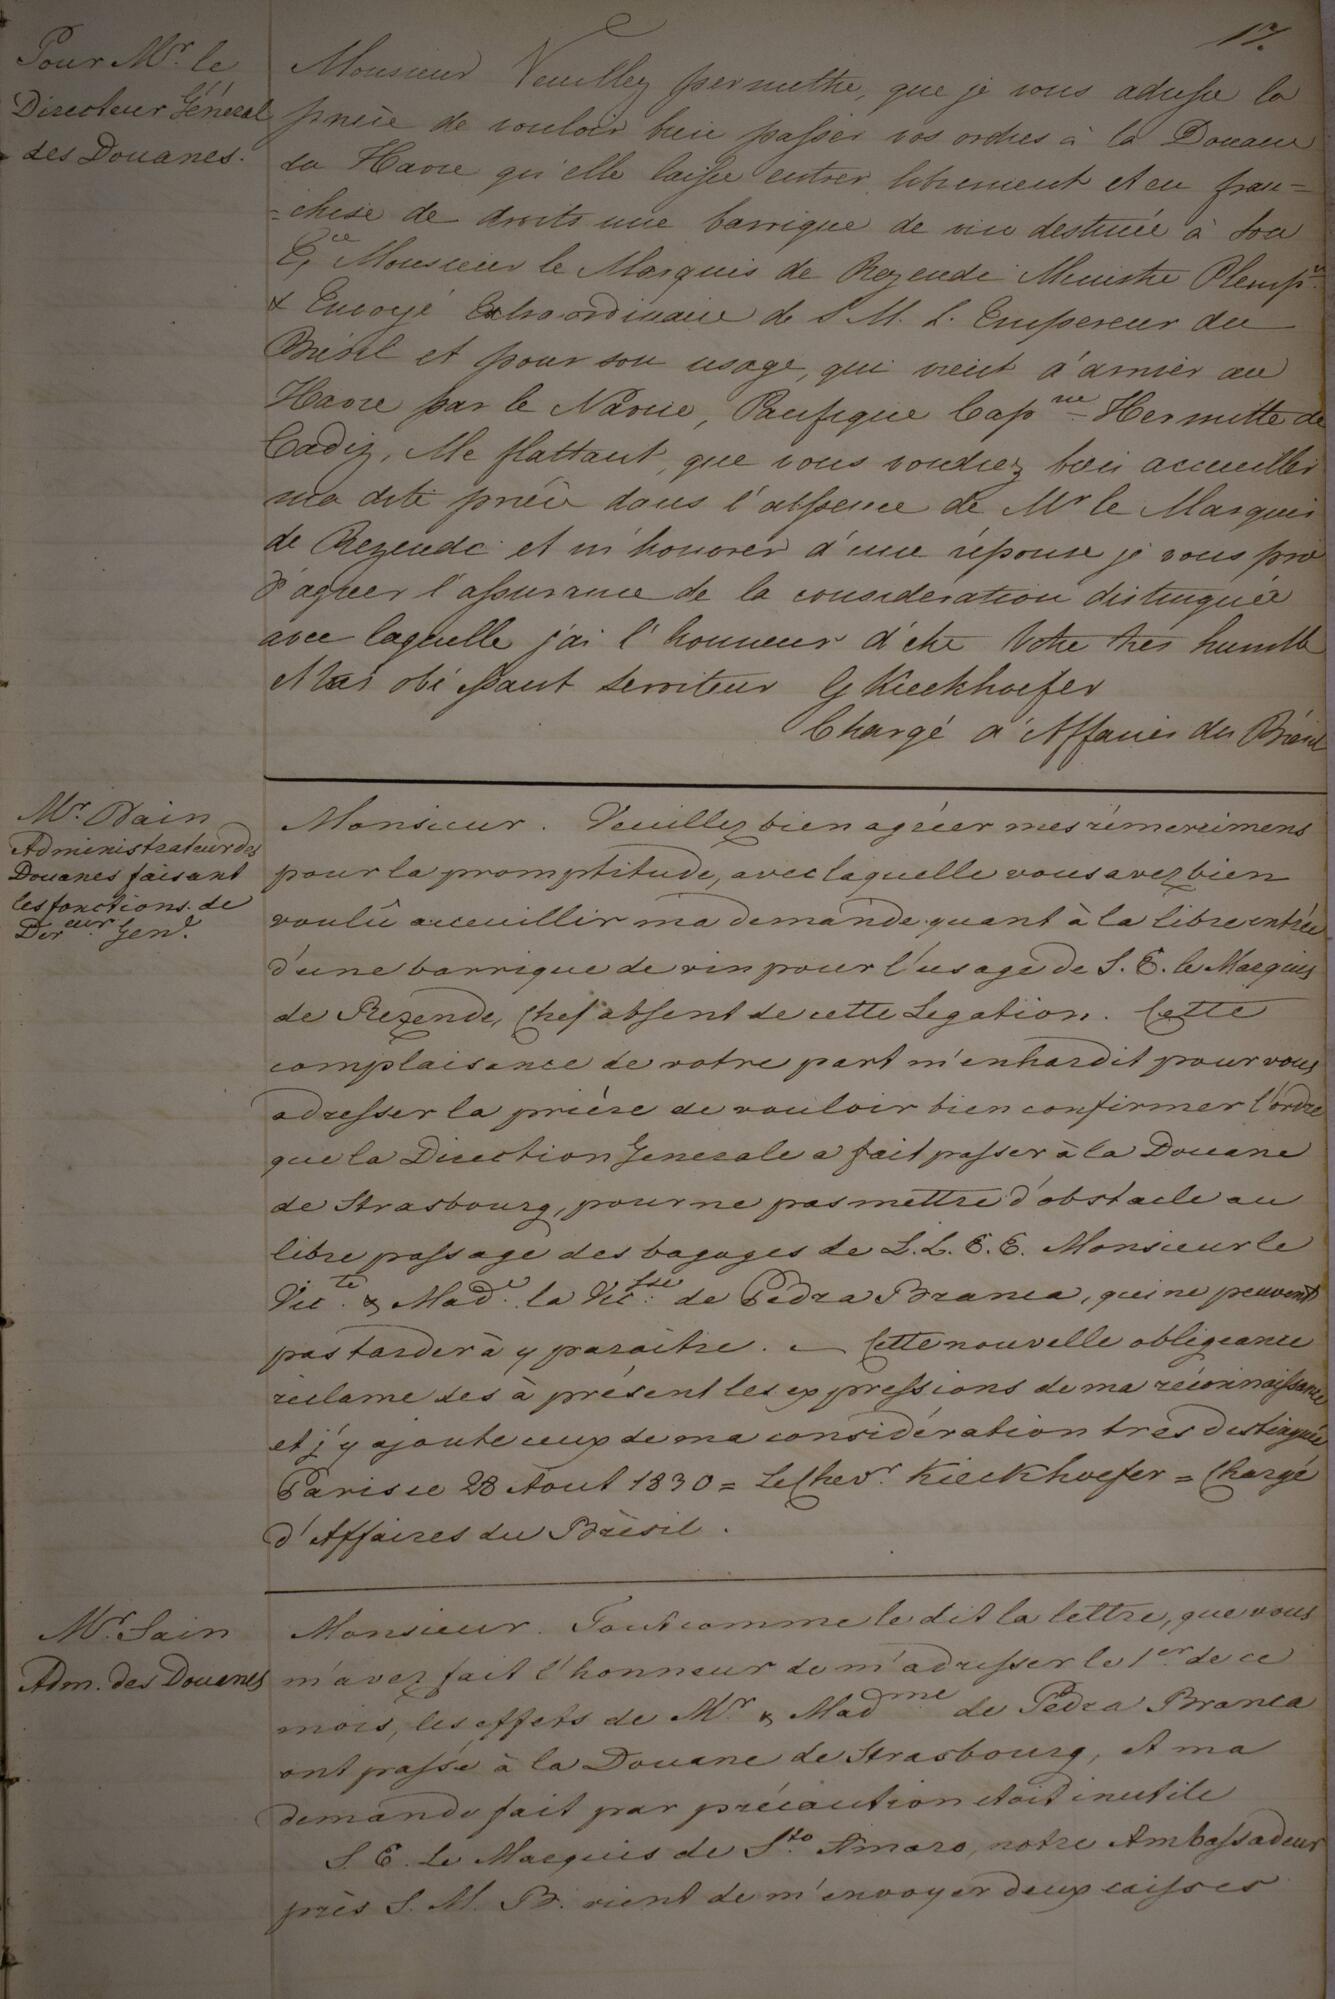 17.
Pour Mr. le
Directeur Général
des Douanes.
Monsieur Veuillez permettre, que je vous adresse la
prière de vouloir bien passer vos ordres à la Douane
du Havre qu'elle laisse entrer librement et en fran=
=chise de droits une barrique de vin destinée à Son
Ece Monsieur le Marquis de Rezende Ministre Plenip
& Envoyé Extraordinaire de S. M. L. Empereur du
Brésil et pour son usage, qui vient d'arriver au
Havre par le Navire, Pacifique Capne Hermitte de
Cadiz, Me flattant, que vous voudrez bien accueiller
ma dite prière dans l'absence de Mr le Marquis
de Rezende et m'honorer d'une réponse je vous prie
d'agreer l'assurance de la consideration distinguée
avec laquelle j'ai l'honneur d'être Votre très humble
et tres obéissant Serviteur G Kieckhoefer
Chargé d'Affaires du Brésil
Mr. Dain
Administrateur des
Douanes faisant
les fonctions de
Direur Gen.l
Monsieur. Veuillez bien agréer mes rémercimens
pour la promptitude, avec laquelle vous avez bien
voulû acceuillir ma demande quant à la libre entrée
d'une barrique de vin pour l'usage de S. E. le Marquis
de Rezende, Chef absent de cette Legation. Cette
complaisance de votre part m'enhardit pour vous
adresser la prière de vouloir bien confirmer l'ordre
que la Direction Generale a fait passer à la Douane
de Strasbourg, pour ne pas mettre d'obstacle au
libre passage des bagages de L.L. E.E. Monsieur le
Victe & Made la Vicsse de Pedra Branca, qui ne peuvent
pas tarder à y paraître. — Cette nouvelle obligeance
réclame des à présent les expressions de ma réconnaissance
et j'y ajoute ceux de ma considération très distinguée
Paris ce 28 Aout 1830 = Le Chevr. Kieckhoefer = Chargé
d'Affaires du Brèsil.
Mr. Sain
Adm. des Douanes
Monsieur. Tout comme le dit la lettre, que vous
m'avez fait l'honneur de m'adresser le 1er de ce
mois, les effets de Mr & Madme de Pedra Branca
ont passé à la Douane de Strasbourg, et ma
demande fait par précaution etoit inutile
S. E. le Marquis de Sto. Amaro, notre Ambassadeur
près S. M. B. vient de m'envoyer deux caisses